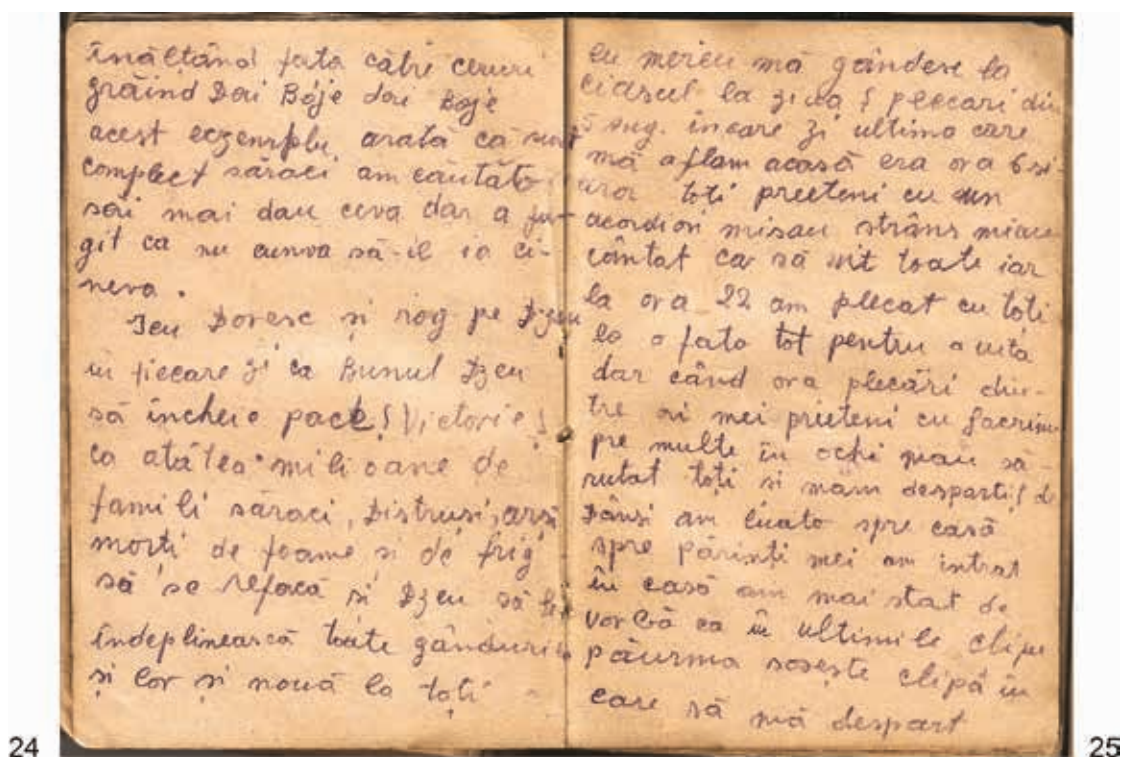 Inălțând fata către ceruri
grăind Doi Bóje doi Boje
acest eczemplu arată că sunt
complect săraci am căutăto
săi mai dau ceva dar a fu-
git ca nu cumva să-il ia ci-
neva.
Ieu Doresc și rog pe Dzeu
in fiecare zi ca Bunul Dzeu
să incheie pace! Victorie!
ca atâtea milioane de
famili săraci, Distruși, arsi
morti de foame și de frig
să se refacă și Dzeu să le
îndeplinească toate gânduri
și lor și nouă la toți
24
eu mereu mă gândesc la
ciasul la ziua ! plecari din
5 aug. incare zi ultima care
mă aflam acasă era ora 6 si
toti preeteni cu un
acordion misau strâns miau
cântat ca să uit toate iar
la ora 22 am plecat cu toti
la o fata tot pentru a uita
dar când ora plecări din-
tre ai mei prieteni cu lacrimi
pre multe în ochi miau să-
rutat toți si mám despartit de
Dânsi am luato spre casă
spre părinți mei am intrat
în casă am mai stat de
vorbă ca in ultimile clipe
păurma sosește clipă in
care să mă despart
25